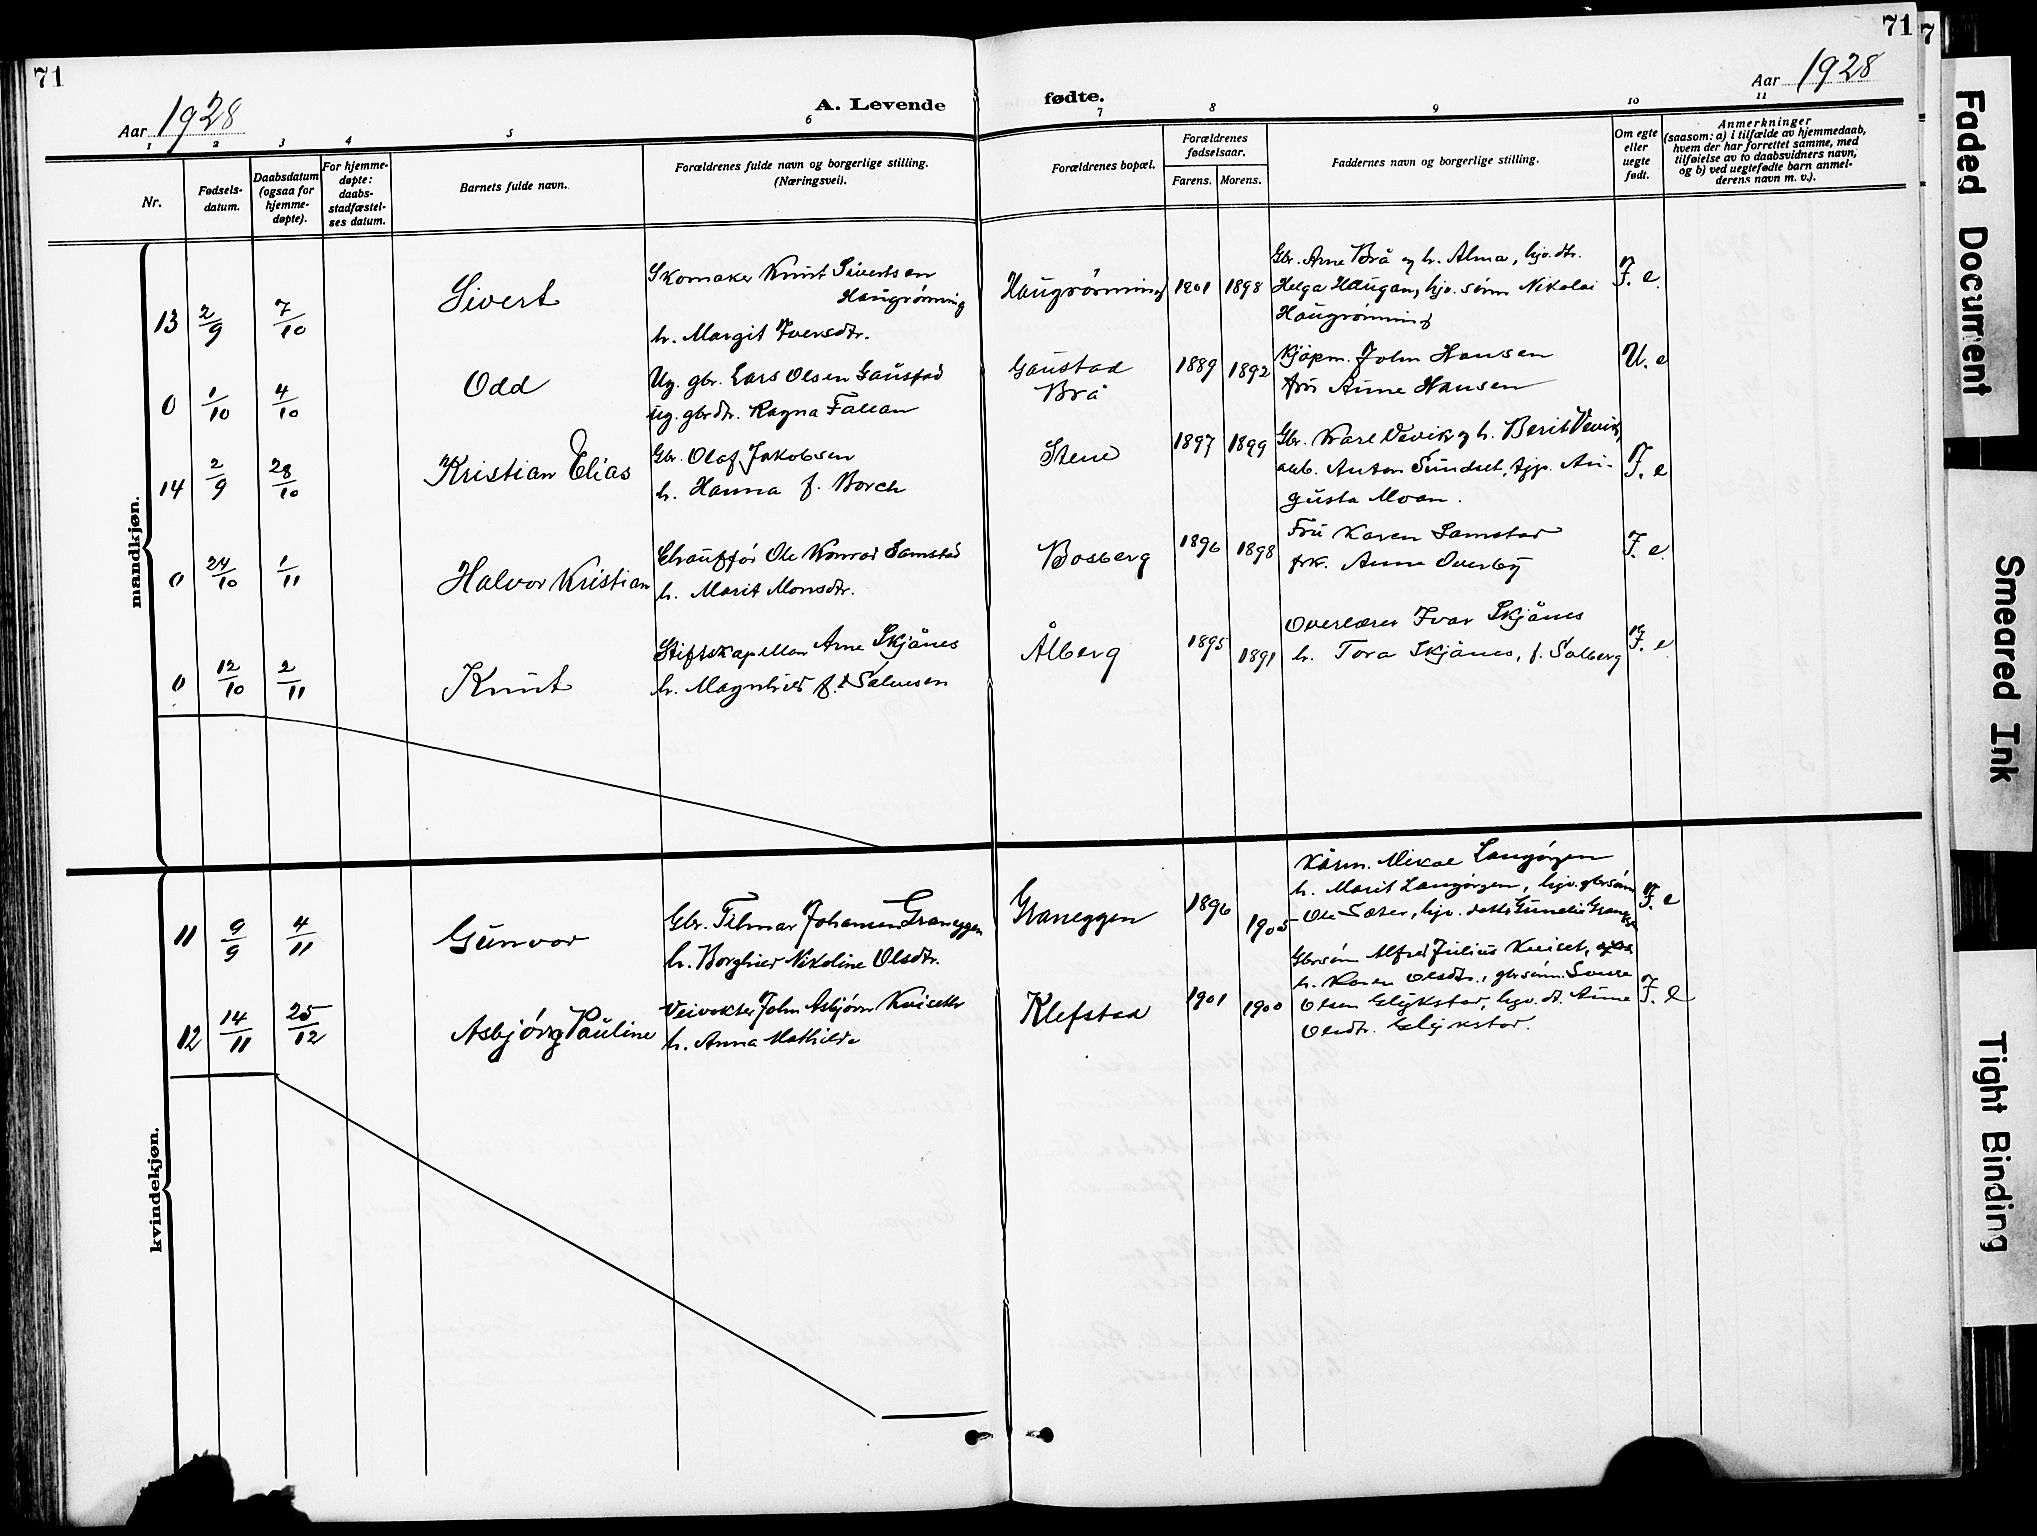 71
71
7
Aar 1928
A. Levende
fødte.
Aar 1928
1 2 3 4 5 6 7 8 9 10 11
Nr.
Fødsels-
datum.
Daabsdatum
(ogsaa for
hjemme-
døpte).
For hjemme-
døpte:
daabs-
stadfæstel-
ses datum.
Barnets fulde navn.
Forældrenes fulde navn og borgerlige stilling.
(Næringsvei).
Forældrenes bopæl.
Forældrenes
fødselsaar.
Farens. Morens.
Faddernes navn og borgerlige stilling.
Om egte
eller
uegte
født.
Anmerkninger
(saasom: a) i tilfælde av hjemmedaab,
hvem der har forrettet samme, med
tilføielse av to daabsvidners navn,
og b) ved uegtefødte barn anmel-
derens navn m. v.).
mandkjøn.
13 2/9 7/10 Sivert
Skomaker Knut Sivertsen
Haugrønning
h. Margit Iversdtr.
Haugrønning 1901 1898
Gbr. Arne Brå og h. Alma, hjv. dtr.
Helga Haugan, hjv. sønn Nikolai
Haugrønning
F. e.
0 1/10 4/10 Odd
Ug. gbr. Lars Olsen Gaustad
ug. gbrdtr. Ragna Fallan
Gaustad
Brå
1889 1892
Kjøpm. John Hansen
fru Anne Hansen
U. e
14 2/9 28/10 Kristian Elias
Gbr. Olaf Jakobsen
h. Hanna f. Borch
Stene 1897 1899
Gbr. Karl Vevik og h. Berit Vevik,
arb. Anton Sundset, tjp. Au-
gusta Moan.
F. e
0 24/10 1/11 Halvor Kristian
Chauffør Ole Konrad Samstad
h. Marit Monsdtr.
Bosberg 1896 1898
Fru Karen Samstad
frk. Anne Overby
F. e.
0 12/10 2/11 Knut
Stiftskapellan Arne Skjånes
h. Magnhild f. Salvesen
Ålberg 1895 1891
Overlærer Ivar Skjånes
h. Tora Skjånes, f. Solberg
F. e
kvindekjøn.
11 9/9 4/11 Gunvor
Gbr. Tilmar Johansen Graneggen
h. Borghild Nikoline Olsdtr.
Graneggen 1896 1905
Mikal Langørgen
h. Marit Langørgen, hjv. gbrsønn
Ole Sæter, hjv. datter
F. e
12 14/11 25/12 Asbjørg Pauline
Veivokter John Asbjørn Kviseth
h. Anna Mathilde
Klefstad 1901 1900
Gbrsøn Alfred Julius Kviset,
h. Karen Olsdtr., gbrsønn Sverre
Olsen Glykstad, hjv. dt. Anne
Olsdtr. Glykstad.
F. e
Faded Document
Smeared Ink
Tight Binding